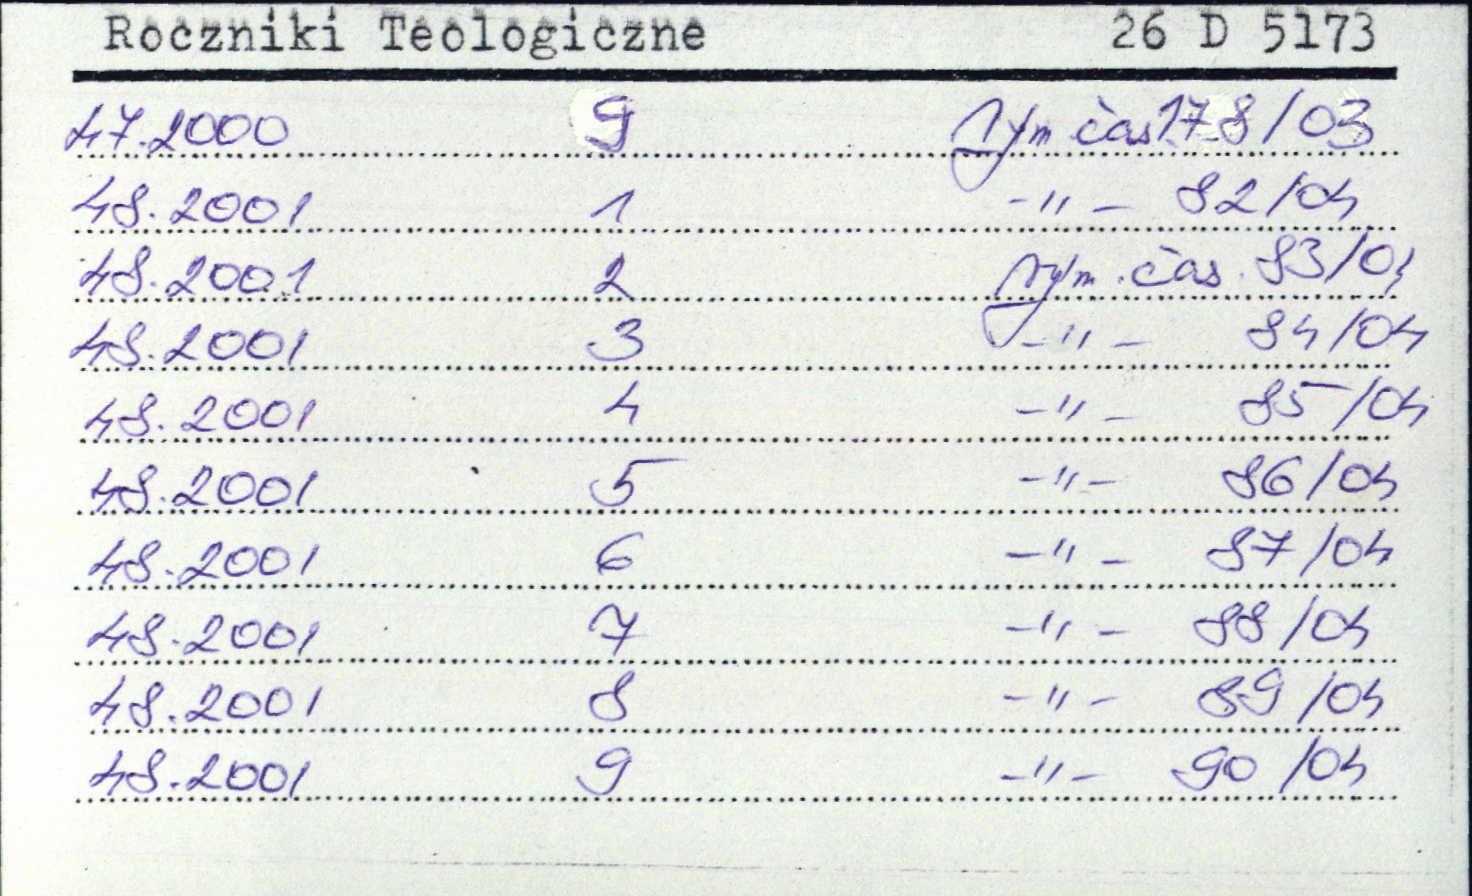 Roczniki Teologiczne 26 D 5173
47.2000 9 Vým čas 178/03
48.2001 1 -"- 82/04
48.2001 2 Vým. čas. 83/04
48.2001 3 -"- 84/04
48.2001 4 -"- 85/04
48.2001 5 -"- 86/04
48.2001 6 -"- 87/04
48.2001 7 -"- 88/04
48.2001 8 -"- 89/04
48.2001 9 -"- 90/04